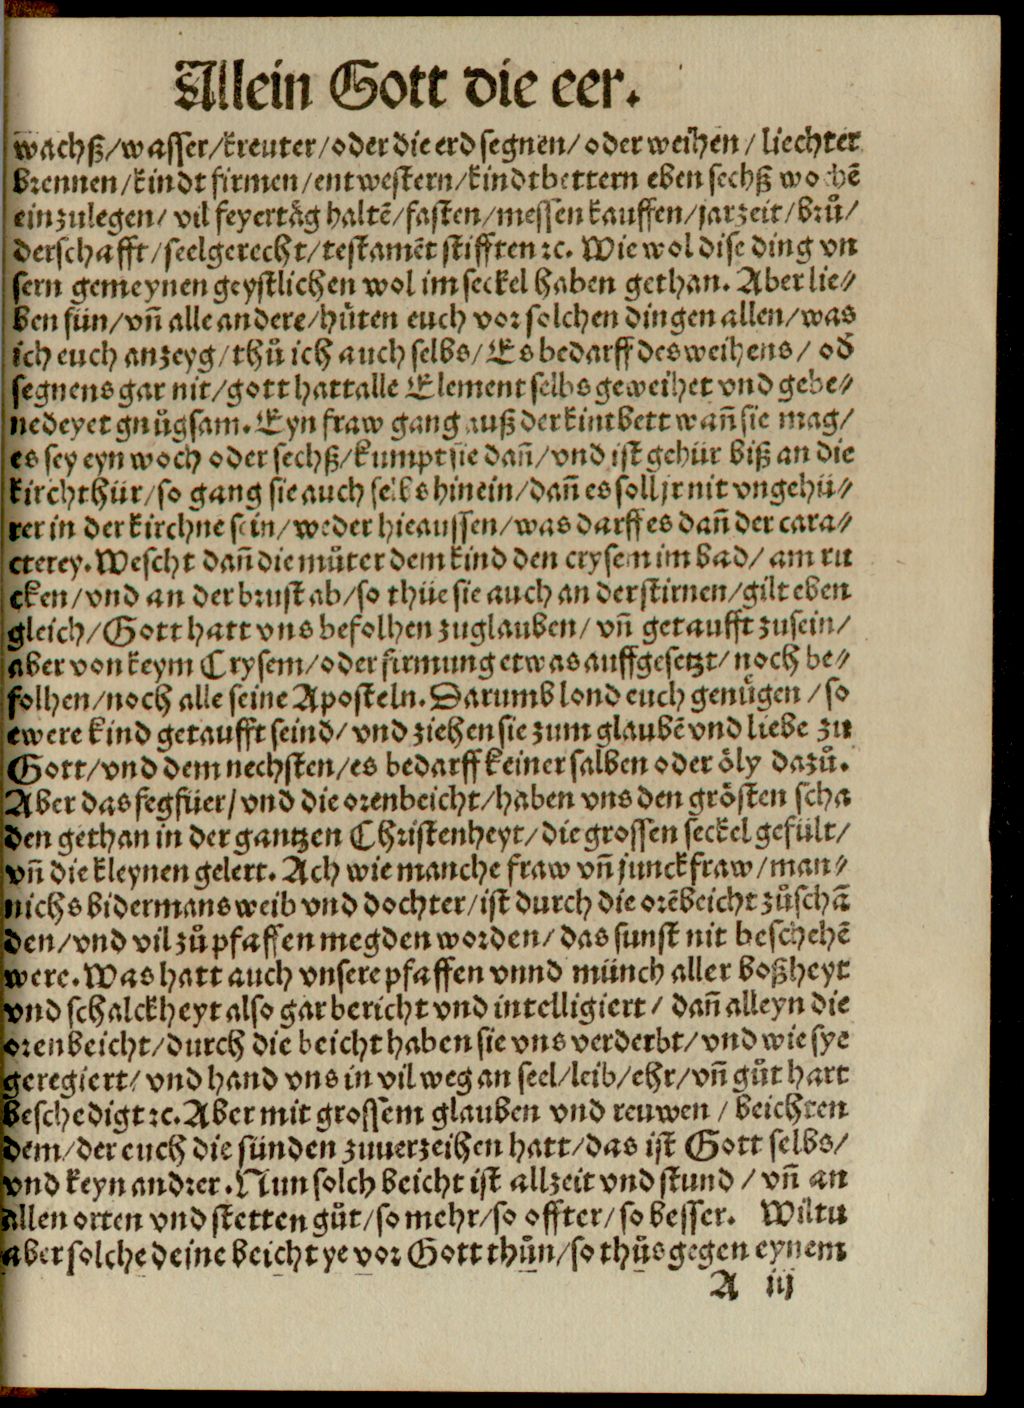 Allein Gott die eer.
wachß/wasser/kreuter/oder die erd segnen/oder weihen/liechter
brennen/kindt firmen/entwestern/kindtbettern eben sechß wochẽ
einzulegen/vil feyertäg haltẽ/fasten/messen kauffen/jarzeit/brů/
derschafft/seelgerecht/testamẽt stifften ꝛc. Wie wol dise ding vn
sern gemeynen geystlichen wol im seckel haben gethan. Aber lie⸗
ben sün/vñ alle andere/hůten euch vor solchen dingen allen/was
ich euch anzeyg/thů ich auch selbs/Es bedarff des weihens/od̃
segnens gar nit/gott hatt alle Element selbs geweihet vnd gebe⸗
nedeyet gnůgsam. Eyn fraw gang auß der kintbett wañ sie mag/
es sey eyn woch oder sechß/kumpt sie dañ/vnd ist gehür biß an die
kirchthür/so gang sie auch selbs hinein/dañ es soll jr nit vngehü⸗
rer in der kirchne sein/weder hieaussen/was darff es dañ der cara⸗
cterey. Wescht dañ die můter dem kind den crysem im bad/am ru
cken/vnd an der brust ab/so thüe sie auch an der stirnen/gilt eben
gleich/Gott hatt vns befolhen zuglauben/vñ getaufft zusein/
aber von keym Crysem/oder firmung etwas auffgesetzt/noch be⸗
folhen/noch alle seine Aposteln. Darumb lond euch genůgen/so
ewere kind getaufft seind/vnd ziehen sie zum glaubẽ vnd liebe zu
Gott/vnd dem nechsten/es bedarff keiner salben oder öly dazů.
Aber das fegfüer/vnd die orenbeicht/haben vns den grösten scha
den gethan in der gantzen Christenheyt/die grossen seckel gefült/
vñ die kleynen gelert. Ach wie manche fraw vñ junckfraw/man⸗
nichs bidermans weib vnd dochter/ist durch die orẽbeicht zůschã
den/vnd vil zů pfaffen megden worden/das sunst nit beschehẽ
were. Was hatt auch vnsere pfaffen vnnd münch aller boßheyt
vnd schalckheyt also gar bericht vnd intelligiert/dañ alleyn die
orenbeicht/durch die beicht haben sie vns verderbt/vnd wie sye
geregiert/vnd hand vns in vil weg an seel/leib/ehr/vñ gůt hart
beschedigt ꝛc. Aber mit grossem glauben vnd reuwen/beichten
dem/der euch die sünden zuuerzeihen hatt/das ist Gott selbs/
vnd keyn andrer. Nun solch beicht ist allzeit vnd stund/vñ an
allen orten vnd stetten gůt/so mehr/so offter/so besser. Wiltu
aber solche deine beicht ye vor Gott thůn/so thůs gegen eynem
A iij